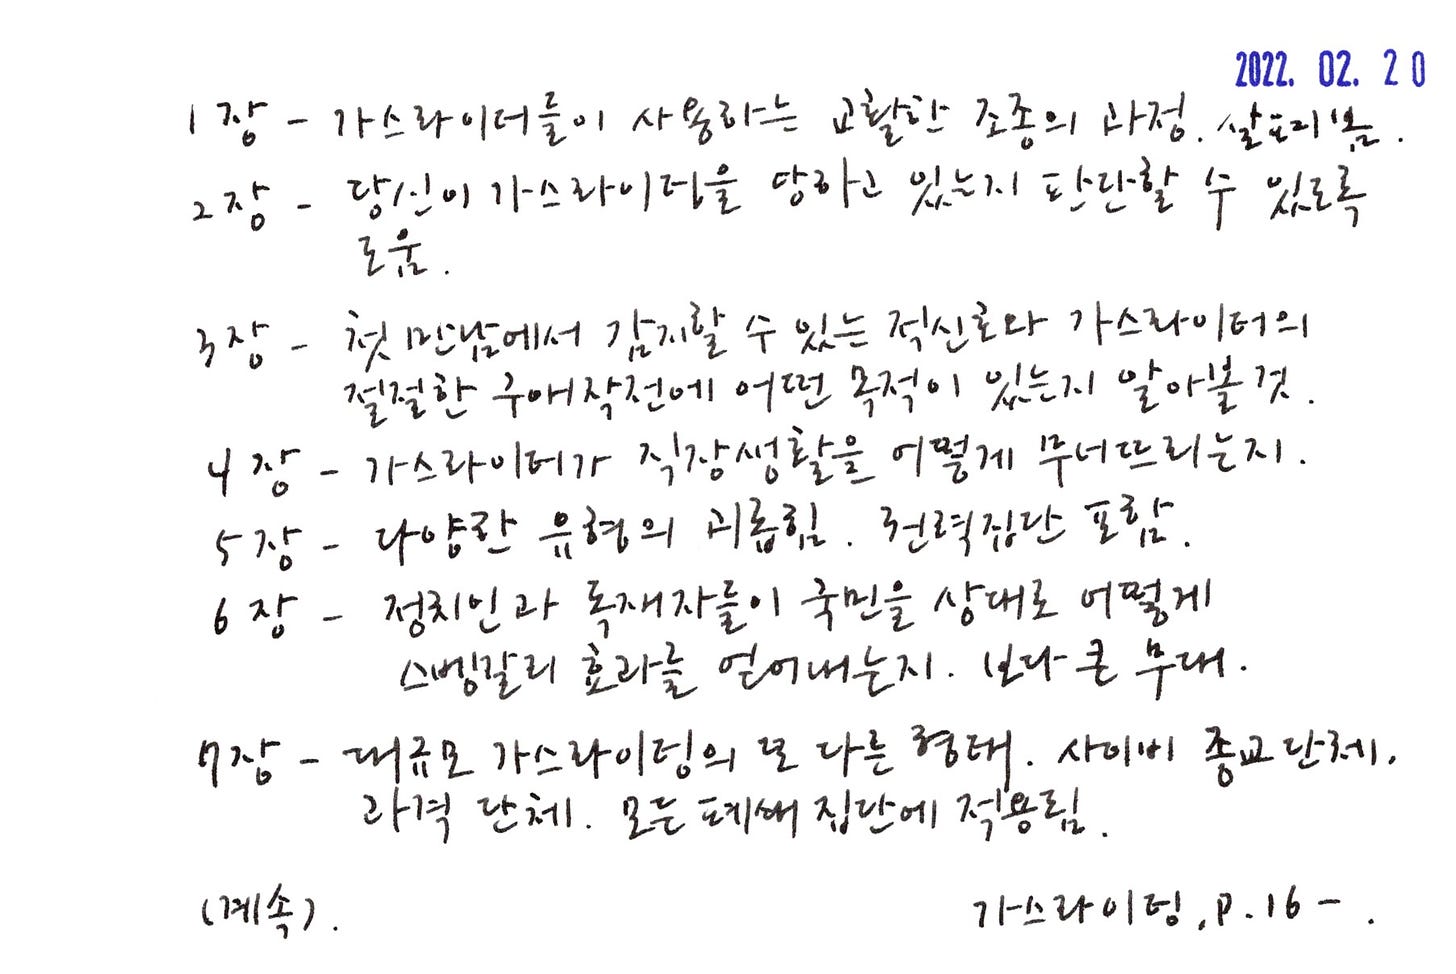 2022. 02. 20
1장 - 가스라이더들이 사용하는 교활한 조종의 과정. 살펴봄.
2장 - 당신이 가스라이팅을 당하고 있는지 판단할 수 있도록
도움.
3장 - 첫 만남에서 감지할 수 있는 적신호와 가스라이터의
절절한 구애작전에 어떤 목적이 있는지 알아볼 것.
4장 - 가스라이터가 직장생활을 어떻게 무너뜨리는지.
5장 - 다양한 유형의 괴롭힘. 권력집단 포함.
6장 - 정치인과 독재자들이 국민을 상대로 어떻게
스벵갈리 효과를 얻어내는지. 보다 큰 무대.
7장 - 대규모 가스라이팅의 또 다른 형태. 사이비 종교단체,
과격 단체. 모든 폐쇄 집단에 적용됨.
(계속).
가스라이팅, P.16 - .